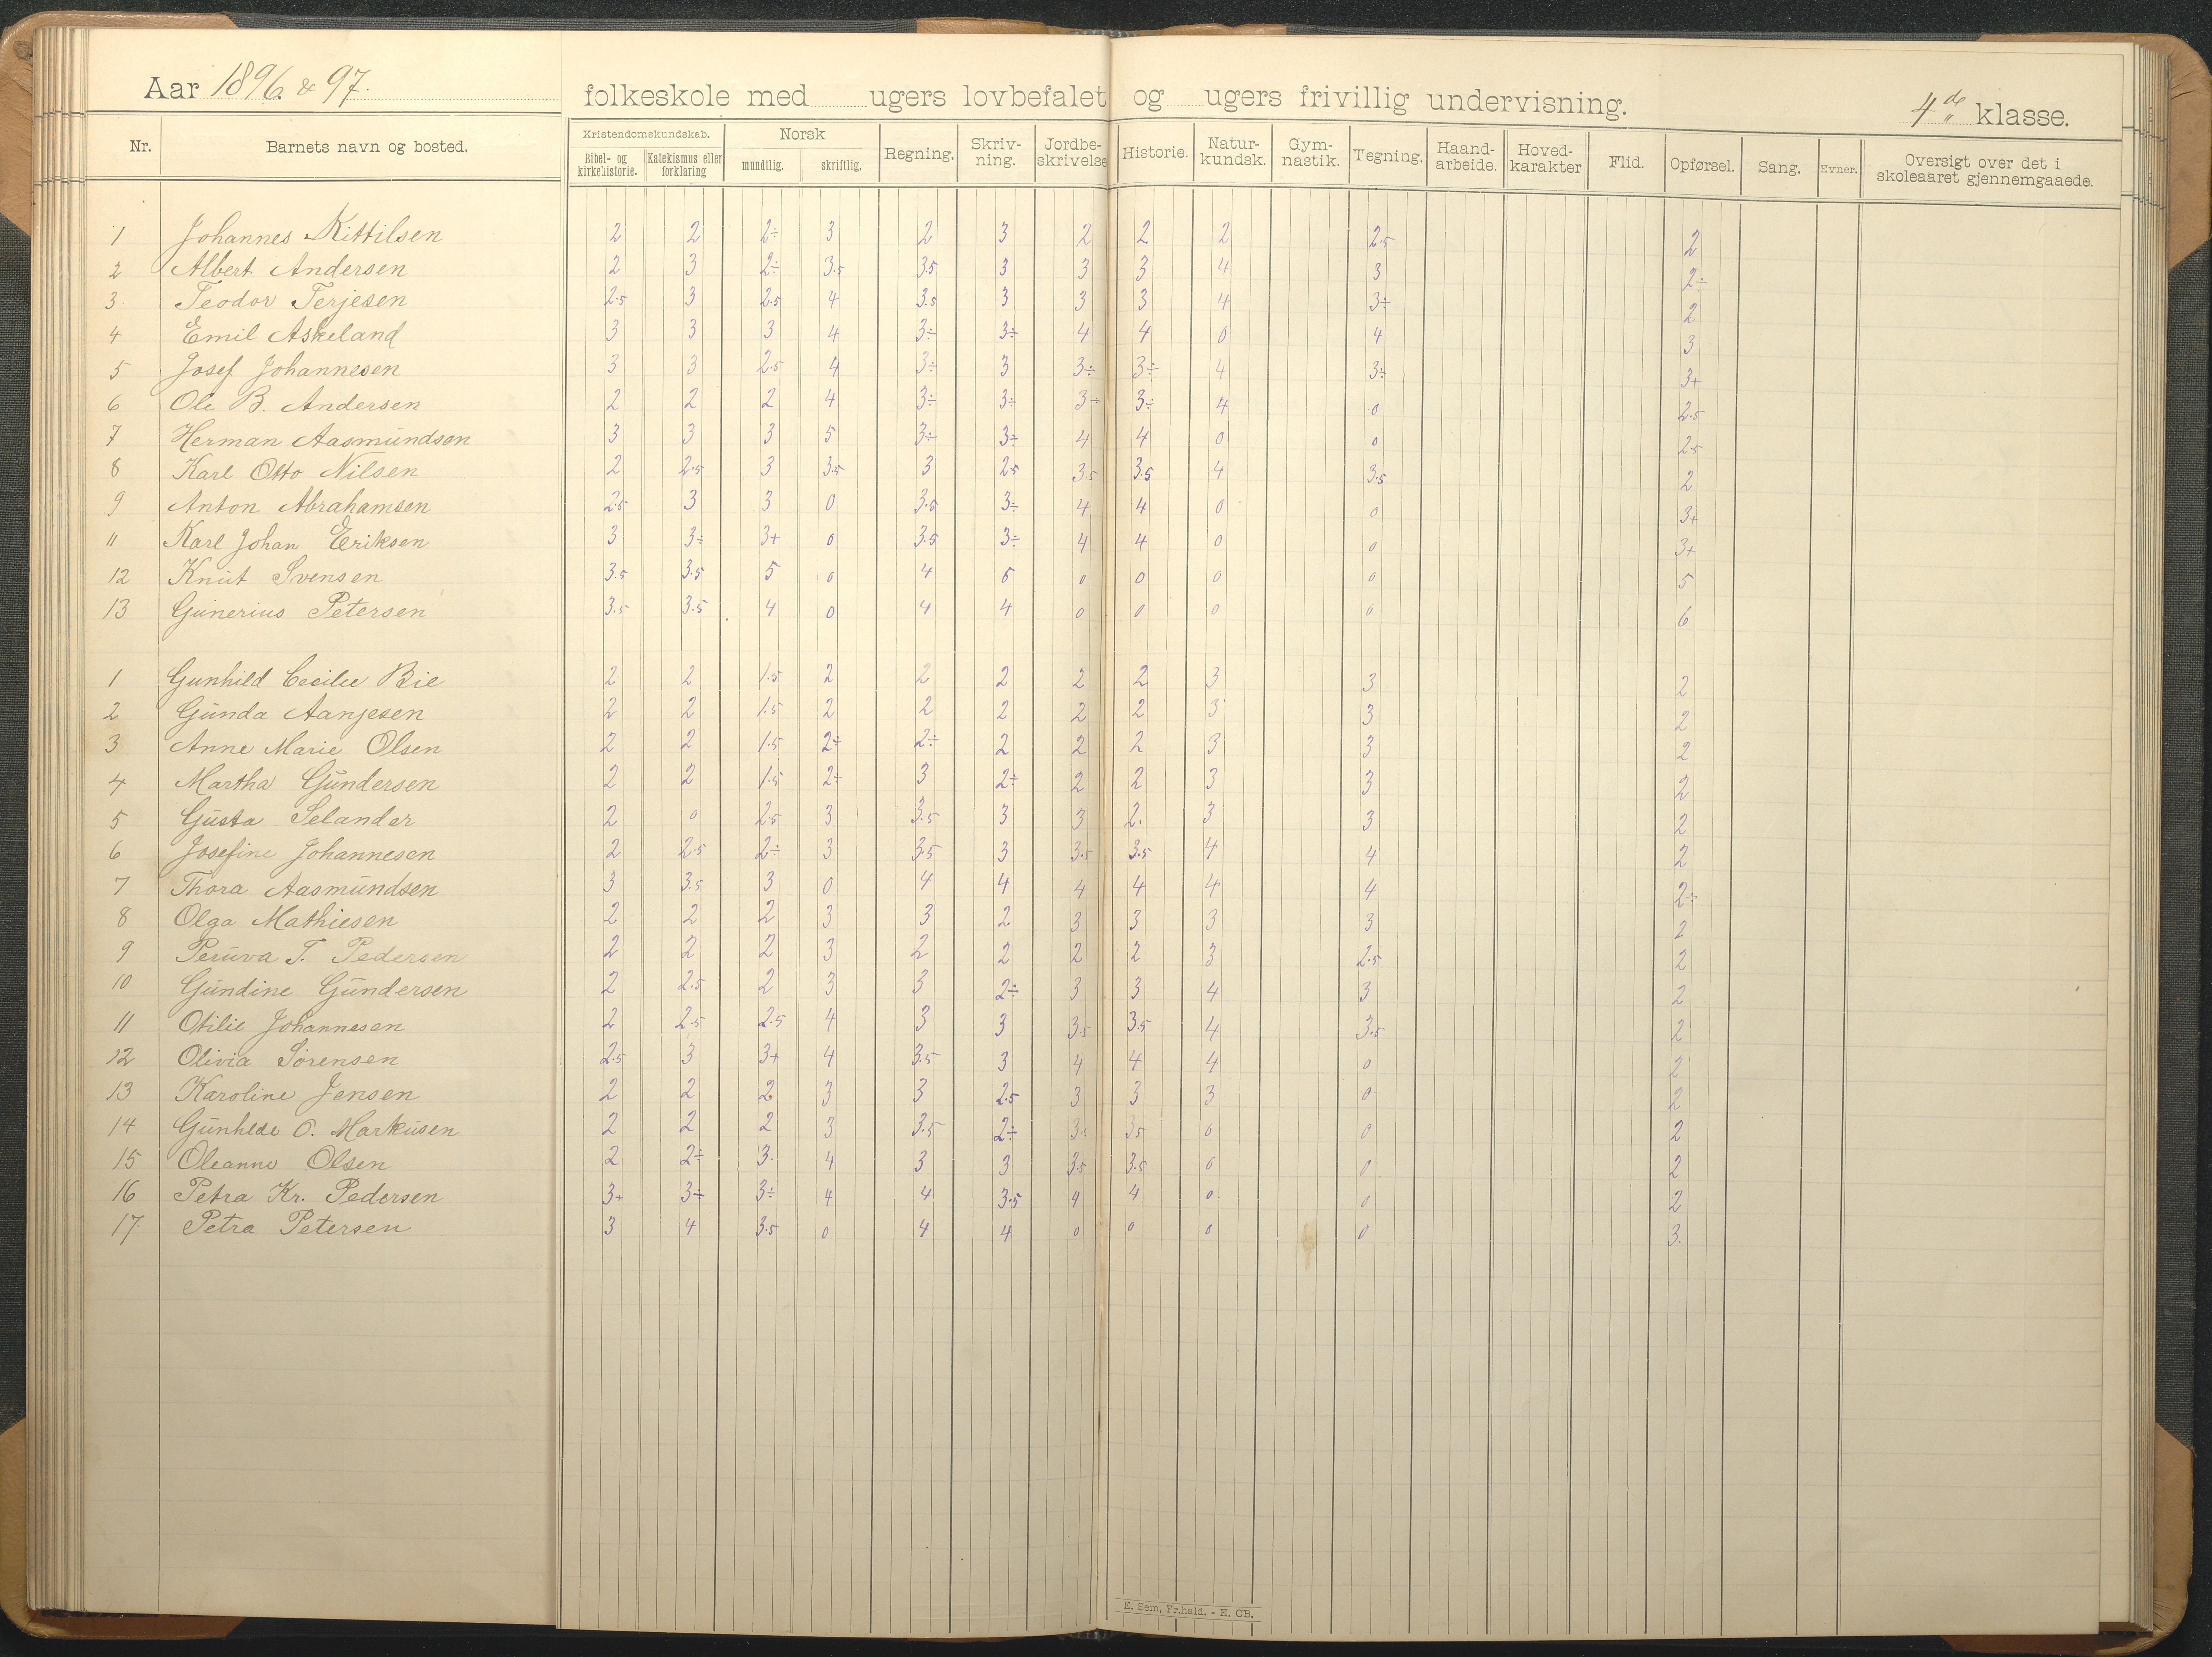 Aar 1896 & 97. folkeskole med ugers lovbefalet og ugers frivillig undervisning. 4de klasse.
Nr. Barnets navn og bosted. Kristendomskundskab. Bibel- og kirkehistorie. Katekismus eller forklaring Norsk mundtlig. skriftlig. Regning. Skriv-ning. Jordbe-skrivelse Historie. Natur-kundsk. Gym-nastik. Tegning. Haand-arbeide. Hoved-karakter Flid. Opførsel. Sang. Evner. Oversigt over det i skoleaaret gjennemgaaede.
1 Johannes Kittilsen 2 2 2÷ 3 2 3 2 2 2 2.5 2
2 Albert Andersen 2 3 2÷ 3.5 3.5 3 3 3 4 3 2÷
3 Teodor Terjesen 2.5 3 2.5 4 3.5 3 3 3 4 3÷ 2
4 Emil Askeland 3 3 3 4 3÷ 3÷ 4 4 0 4 3
5 Josef Johannesen 3 3 2.5 4 3÷ 3 3÷ 3÷ 4 3÷ 3+
6 Ole B. Andersen 2 2 2 4 3÷ 3÷ 3÷ 3÷ 4 0 2.5
7 Herman Aasmundsen 3 3 3 5 3÷ 3÷ 4 4 0 0 2.5
8 Karl Otto Nilsen 2 2.5 3 3.5 3 2.5 3.5 3.5 4 3.5 2
9 Anton Abrahamsen 2.5 3 3 0 3.5 3÷ 4 4 0 0 3+
11 Karl Johan Eriksen 3 3÷ 3+ 0 3.5 3÷ 4 4 0 0 3+
12 Knut Svensen 3.5 3.5 5 0 4 5 0 0 0 0 5
13 Gunerius Petersen 3.5 3.5 4 0 4 4 0 0 0 0 6
1 Gunhild Cecilie Bie 2 2 1.5 2 2 2 2 2 3 3 2
2 Gunda Aanjesen 2 2 1.5 2 2 2 2 2 3 3 2
3 Anne Marie Olsen 2 2 1.5 2÷ 2÷ 2 2 2 3 3 2
4 Martha Gundersen 2 2 1.5 2÷ 3 2÷ 2 2 3 3 2
5 Gusta Selander 2 0 2.5 3 3.5 3 3 2. 3 3 2
6 Josefine Johannesen 2 2.5 2÷ 3 3.5 3 3.5 3.5 4 4 2
7 Thora Aasmundsen 3 3.5 3 0 4 4 4 4 4 4 2÷
8 Olga Mathiesen 2 2 2 3 3 2 3 3 3 3 2
9 Peruva T. Pedersen 2 2 2 3 2 2 2 2 3 2.5 2
10 Gundine Gundersen 2 2.5 2 3 3 2÷ 3 3 4 3 2
11 Otilie Johannesen 2 2.5 2.5 4 3 3 3.5 3.5 4 3.5 2
12 Olivia Sørensen 2.5 3 3+ 4 3.5 3 4 4 4 0 2
13 Karoline Jensen 2 2 2 3 3 2.5 3 3 3 0 2
14 Gunhede O. Markusen 2 2 2 3 3.5 2÷ 3.5 3.5 0 0 2
15 Oleanne Olsen 2 2÷ 3. 4 3 3 3.5 3.5 0 0 2
16 Petra Kr. Pedersen 3+ 3÷ 3÷ 4 4 3.5 4 4 0 0 2
17 Petra Petersen 3 4 3.5 0 4 4 0 0 0 0 3.
E. Sem, Fr.hald. - E. CB.